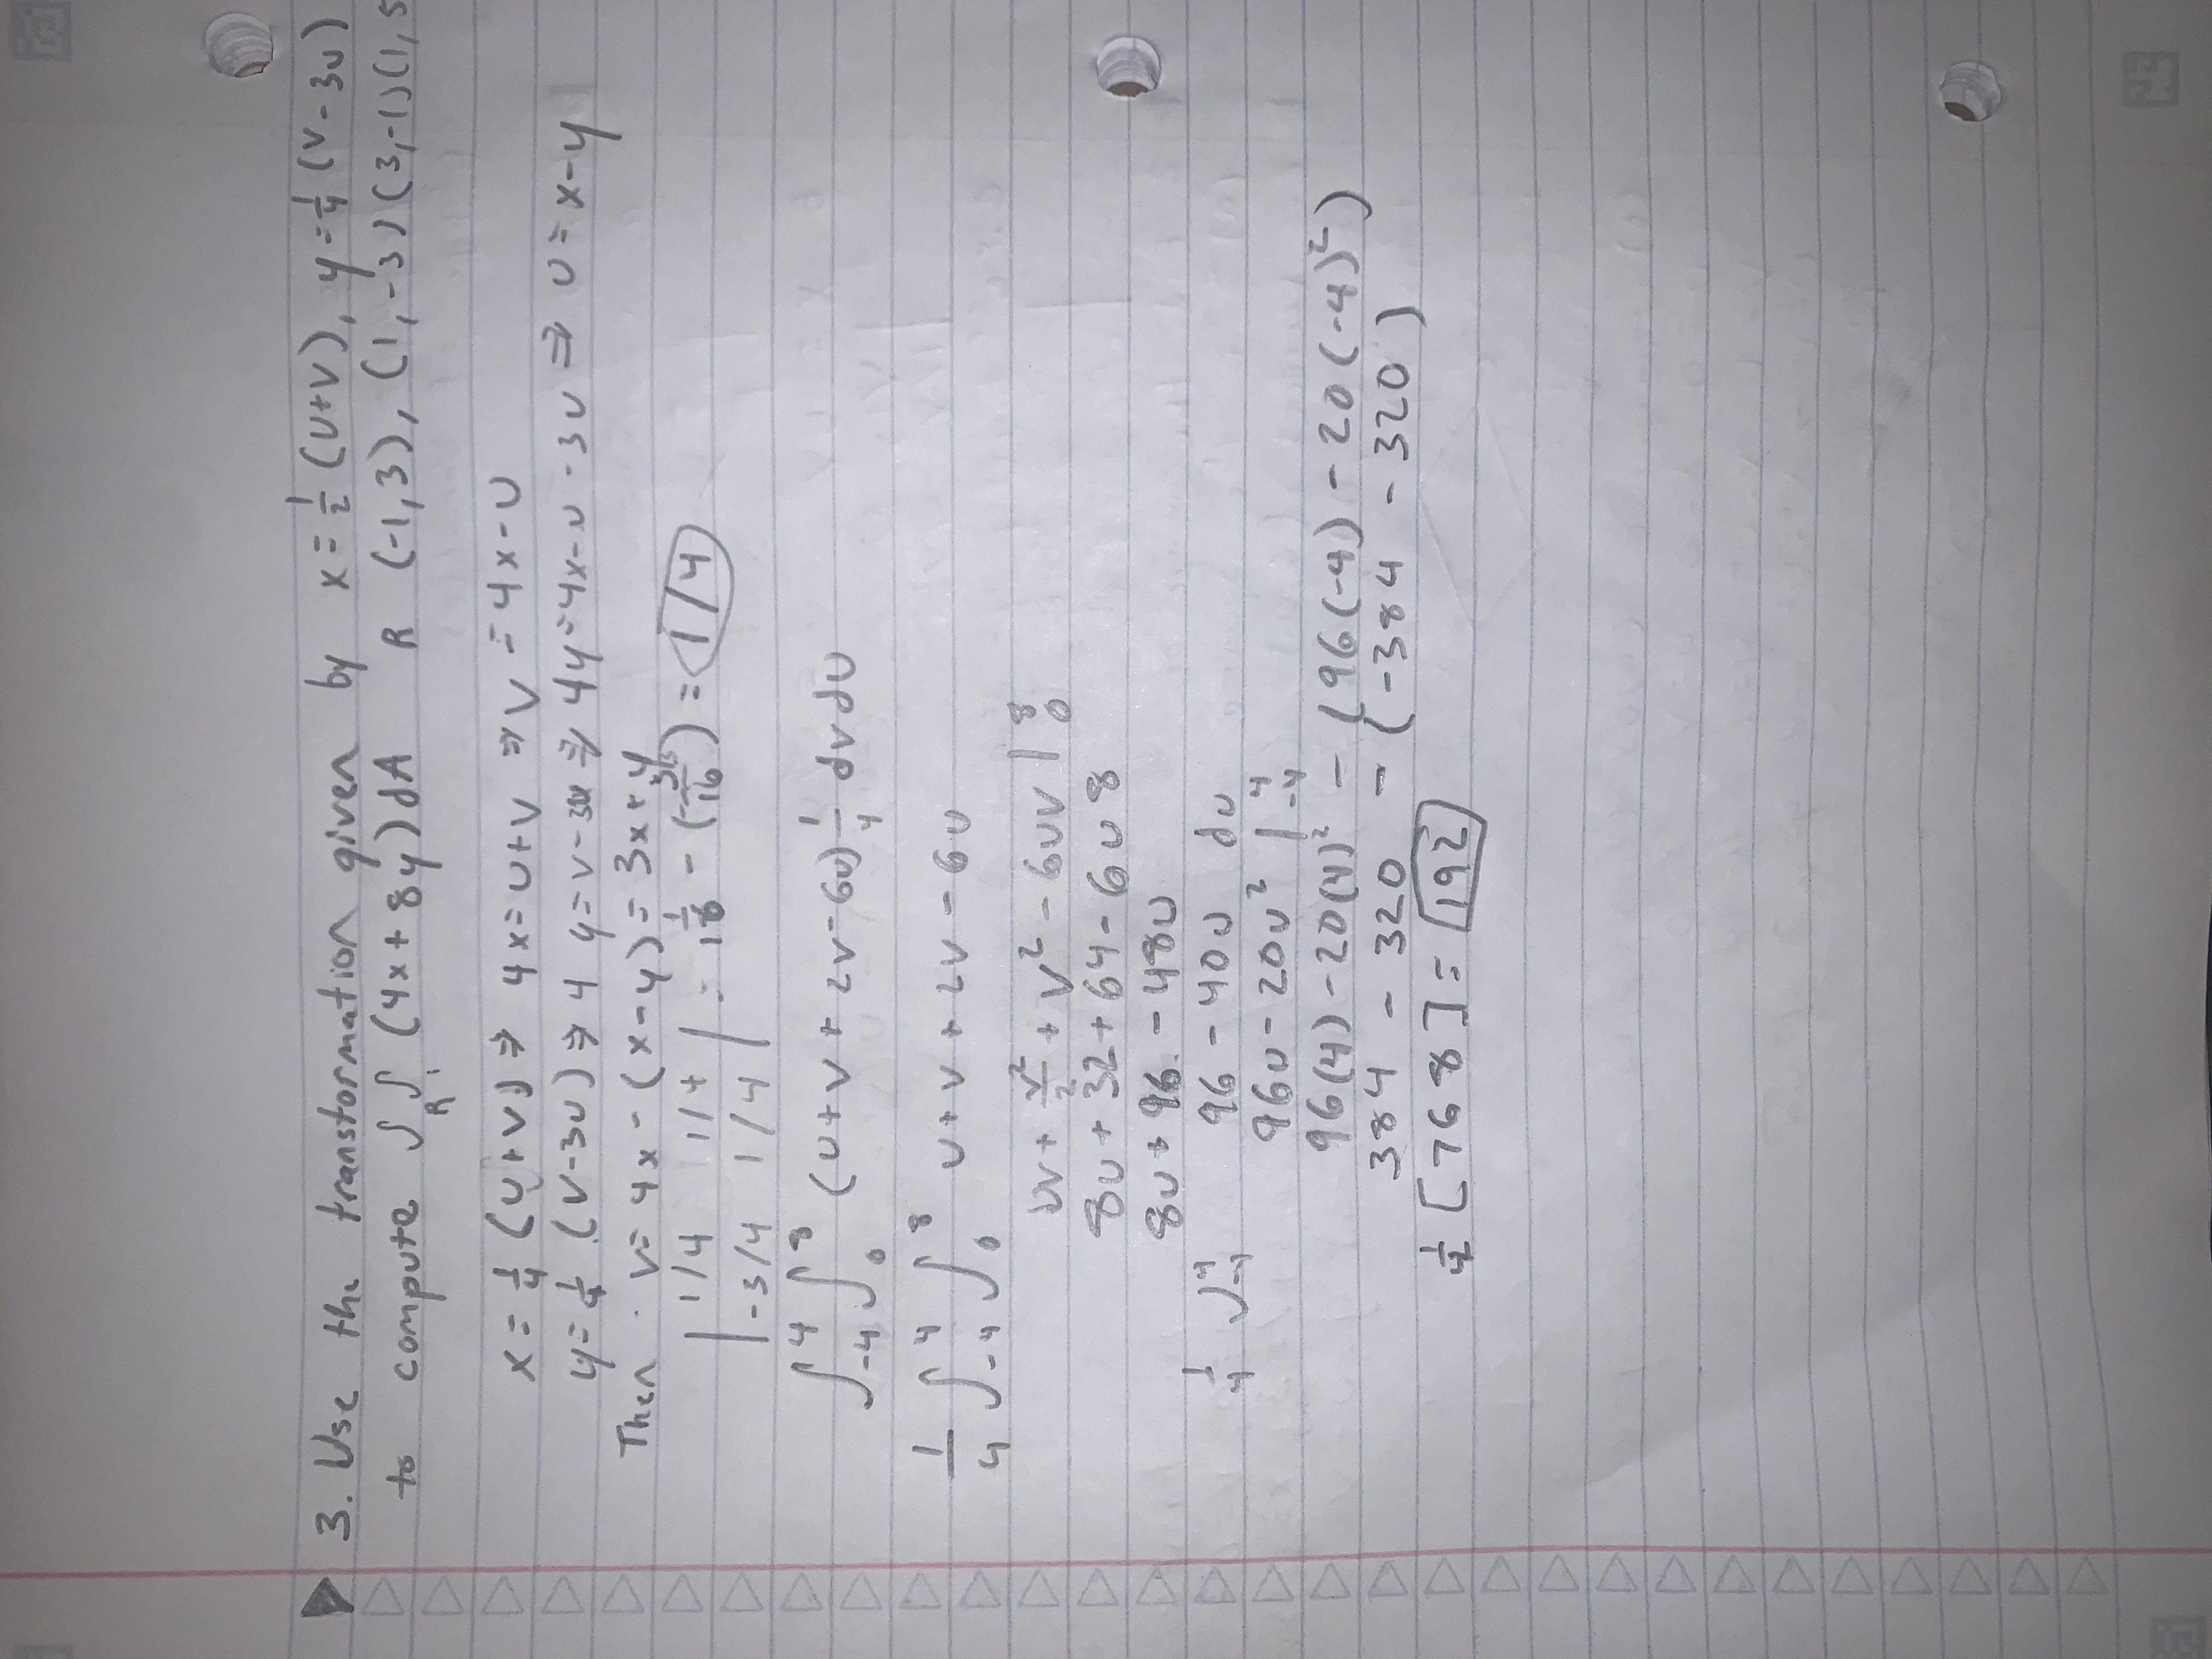 3. Use the transformation given by x = 1/2 (U+V), y = 1/4 (V-3U)
to compute ∫∫_R (4x + 8y) dA R (-1,3), (1,-3) (3,-1) (1, 5
x = 1/4 (U+V) ⇒ 4x = U+V ⇒ V = 4x-U
y = 1/4 (V-3U) ⇒ 4y = V-3U ⇒ 4y = 4x-U-3U ⇒ U = x-y
Then V = 4x - (x-y) = 3x + y
| 1/4 1/4 ; -3/4 1/4 | = 1/16 - (-3/16) = 1/4
∫_-4^4 ∫_0^8 (U+V + 2V-6U) 1/4 dV dU
1/4 ∫_-4^4 ∫_0^8 U+V + 2V - 6U
UV + V²/2 + V² - 6UV |_0^8
8U + 32 + 64 - 6U8
8U + 96 - 48U
1/4 ∫_-4^4 96 - 40U dU
96U - 20U² |_-4^4
96(4) - 20(4)² - (96(-4) - 20(-4)²)
384 - 320 - (-384 - 320)
1/4 [768] = 192